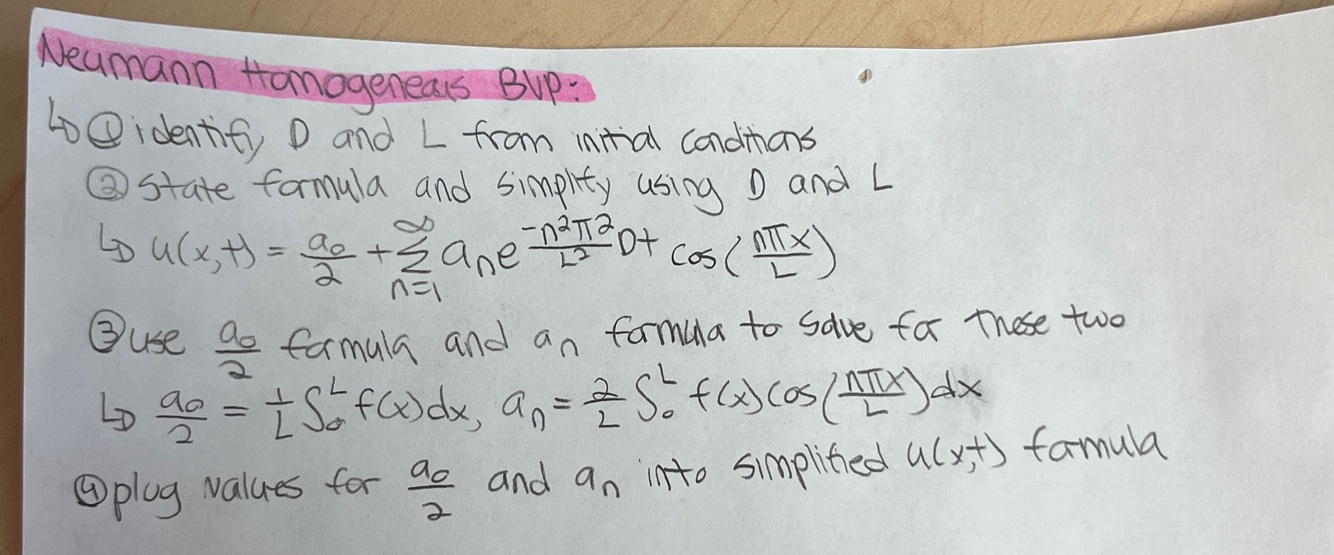 Neumann Homogeneous BVP:
↳ ① identify D and L from initial conditions
② state formula and simplify using D and L
↳ u(x,t) = a₀/2 + ∑_{n=1}^{∞} aₙe^{-n²π²/L² Dt} cos(nπx/L)
③ use a₀/2 formula and aₙ formula to solve for these two
↳ a₀/2 = 1/L ∫₀ᴸ f(x)dx, aₙ = 2/L ∫₀ᴸ f(x)cos(nπx/L)dx
④ plug values for a₀/2 and aₙ into simplified u(x,t) formula